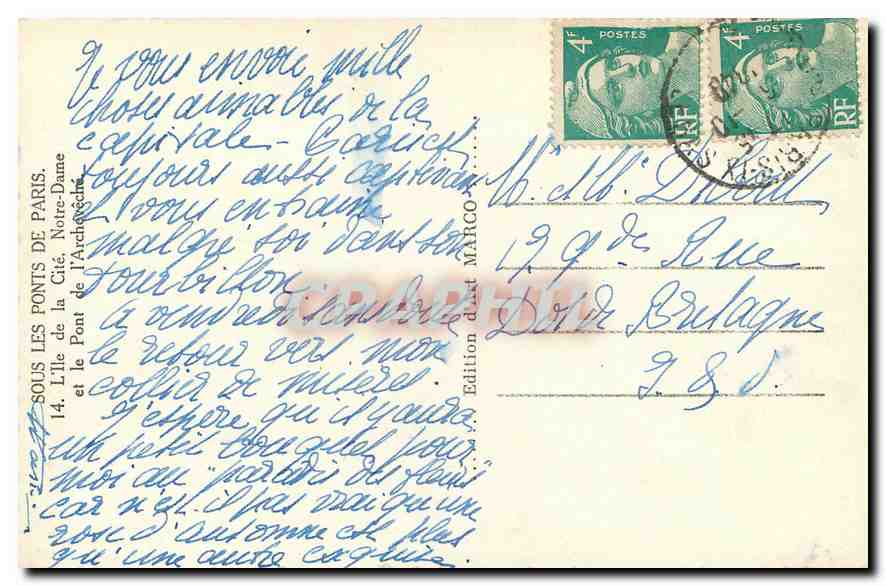 Je vous envoie mille
choses aimables de la
capitale - Paris est
toujours aussi captivant
et vous entraine
malgré soi dans son
tourbillon.
A vendredi sans doute
le retour vers mon
collier de misères.
J'espère qu'il y aura
un petit bouquet pour
moi au "paradis des fleurs"
car n'est-il pas vrai qu'une
rose d'automne est plus
qu'une autre exquise
SOUS LES PONTS DE PARIS.
14. L'Ile de la Cité, Notre-Dame
et le Pont de l'Archevêché.
Edition d'Art MARCO
4F POSTES RF
4F POSTES RF
PARIS IX
M. Mlle
19 Gde Rue
Dol de Bretagne
I. & V.
CPAPHIL